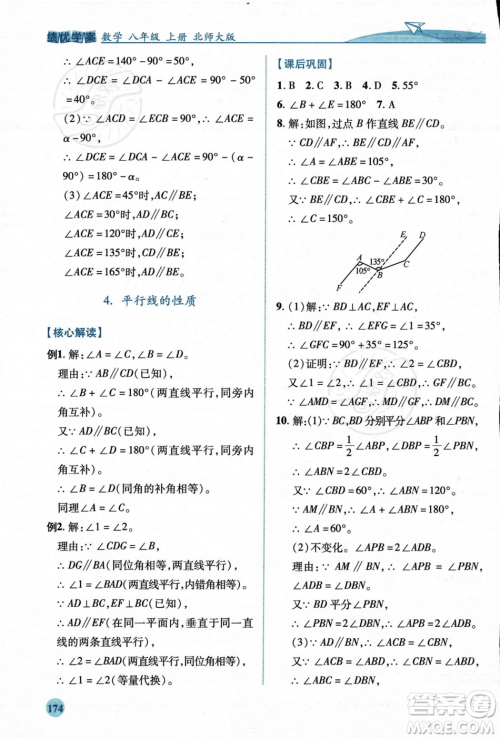 绩优学案 数学 八年级 上册 北师大版
∴ ∠ACE=140°-90°=50°,
∴ ∠DCE=90°-∠ACE=90°-50°
=40°。
(2)∵ ∠ACD=∠ACB-∠BCD=α
-90°,
∴ ∠DCE=90°-∠ACD=90°-(α-90°)
=180°-α。
(3)∠ACE=45°时,AC∥BE;
∠ACE=30°时,AD∥BC;
∠ACE=120°时,AD∥CE;
∠ACE=135°时,CD∥BE;
∠ACE=165°时,AD∥BE。
4. 平行线的性质
【核心解读】
例1. 解:∠A=∠C。
理由:∵ AD∥BC,
∴ ∠A+∠B=180°(两直线平行,同旁内
角互补)。
又∵ AB∥CD,
∴ ∠B+∠C=180°(两直线平行,同旁内
角互补)。
∴ ∠A=∠C(同角的补角相等)。
例2. 解:∠1=∠2。
理由:∵ ∠CDG=∠B,
∴ DG∥BA(同位角相等,两直线平行)。
∴ ∠1=∠BAD(两直线平行,内错角相等)。
∵ AD⊥BC,EF⊥BC,
∴ AD∥EF(在同一平面内,垂直于同一直
线的两条直线平行)。
∴ ∠2=∠BAD(两直线平行,同位角相等)。
∴ ∠1=∠2(等量代换)。
174
【课后巩固】
1. B 2. C 3. C 4. D 5. 55°
6. ∠B+∠E=180° 7. A
8. 解:如图,过点 B 作直线 BE∥CD。
∵ CD∥AF,
∴ BE∥CD∥AF。
∴ ∠A=∠ABE=105°。
∴ ∠CBE=∠ABC-∠ABE=30°。
又∵ BE∥CD,∴ ∠CBE+∠C=180°。
∴ ∠C=150°。
E D
A 135° C
105° B
F
9. (1)解:∵ BD⊥AC,EF⊥AC,
∴ BD∥EF。
∴ ∠EFG=∠1=35°。
∴ ∠GFC=90°+35°=125°。
(2)证明:∵ BD∥EF,
∴ ∠2=∠CBD。
又∵ ∠1=∠2,∴ ∠1=∠CBD。
∴ GF∥BC。
又∵ BC∥DM,∴ MD∥GF。
∴ ∠AMD=∠AGF=∠GFN。
10. 解:(1)∵ BC,BD 分别平分∠ABP 和∠PBN,
∴ ∠CBP=1/2∠ABP,∠DBP=1/2∠PBN。
∴ ∠ABN=2∠CBD。
又∵ ∠CBD=60°,∴ ∠ABN=120°。
又∵ AM∥BN,∴ ∠A+∠ABN=180°。
∴ ∠A=60°。
(2)不变化。∠APB=2∠ADB。
理由:∵ AM∥BN,∴ ∠APB=∠PBN,
∠ADB=∠DBN。
又∵ BD 平分∠PBN,
∴ ∠PBN=2∠DBN。
∴ ∠APB=2∠ADB。
(3)∵ AD∥BN,∴ ∠ACB=∠CBN。
又∵ ∠ACB=∠ABD,
∴ ∠CBN=∠ABD,∴ ∠ABC=∠DBN。